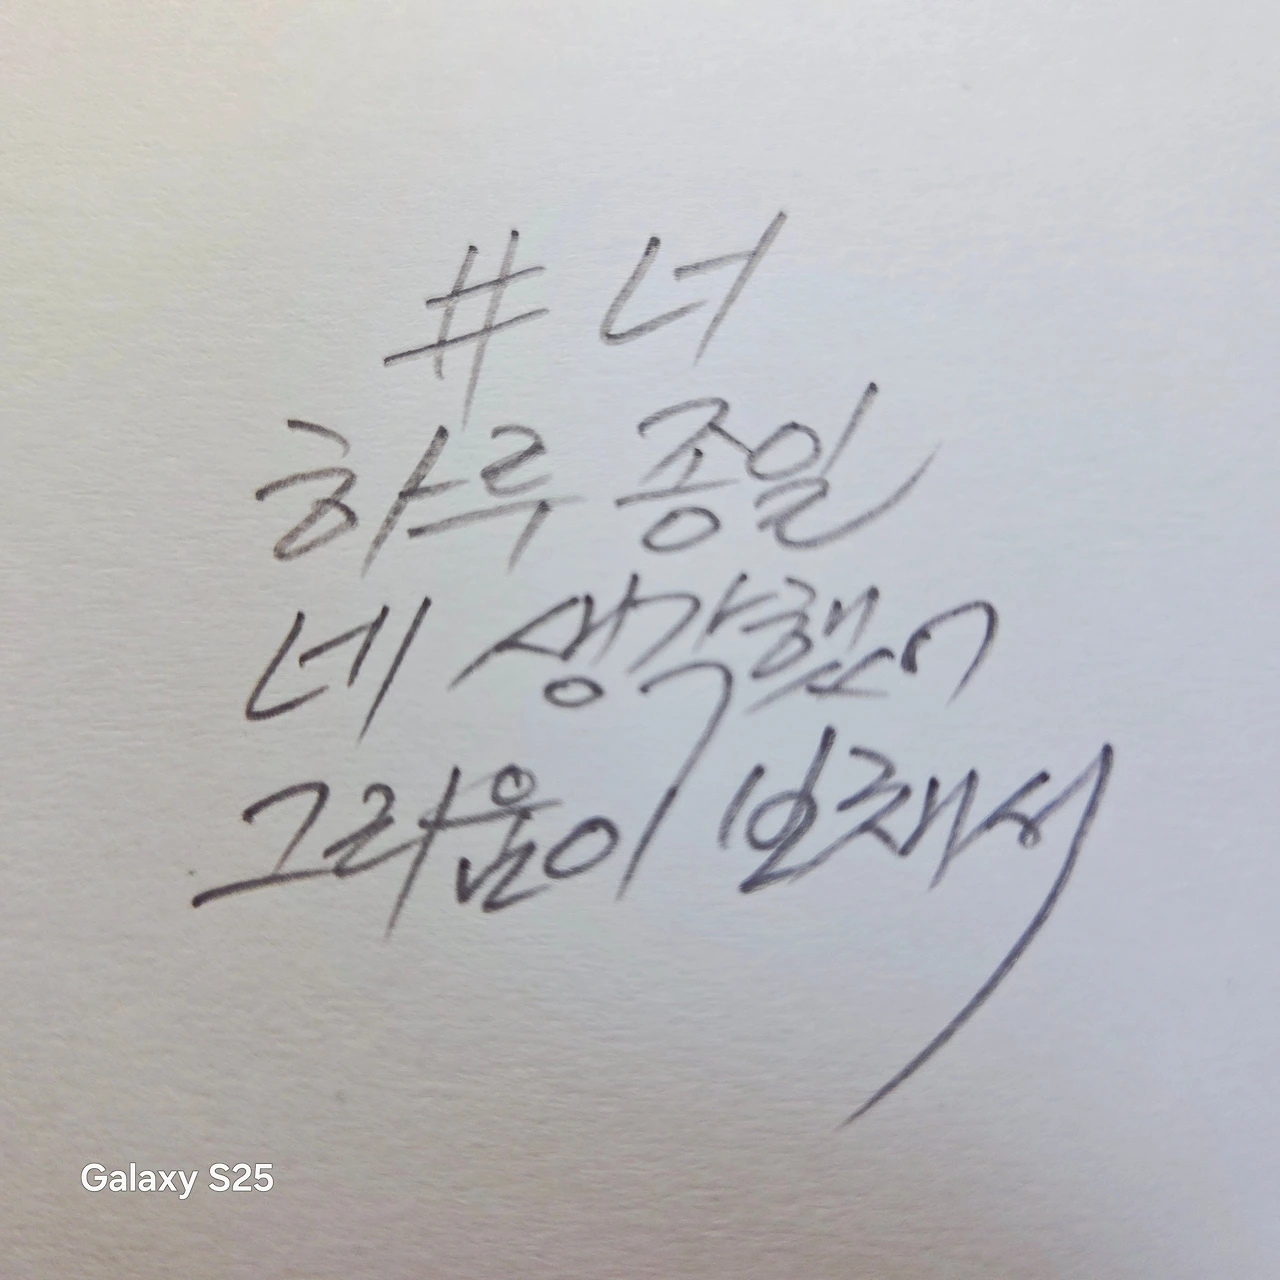 # 너
하루 종일
네 생각했어
그리움이 보채서
Galaxy S25